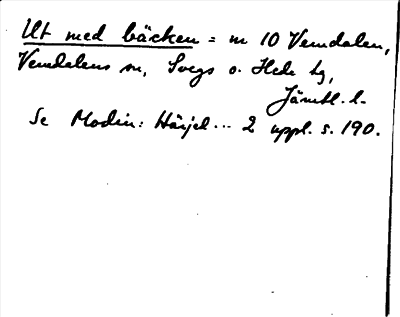 Ut med bäcken = nr 10 Vemdalen,
Vemdalens sn, Svegs o. Hede tg,
Jämtl. l.
Se Modin: Härjed... 2 uppl. s. 190.